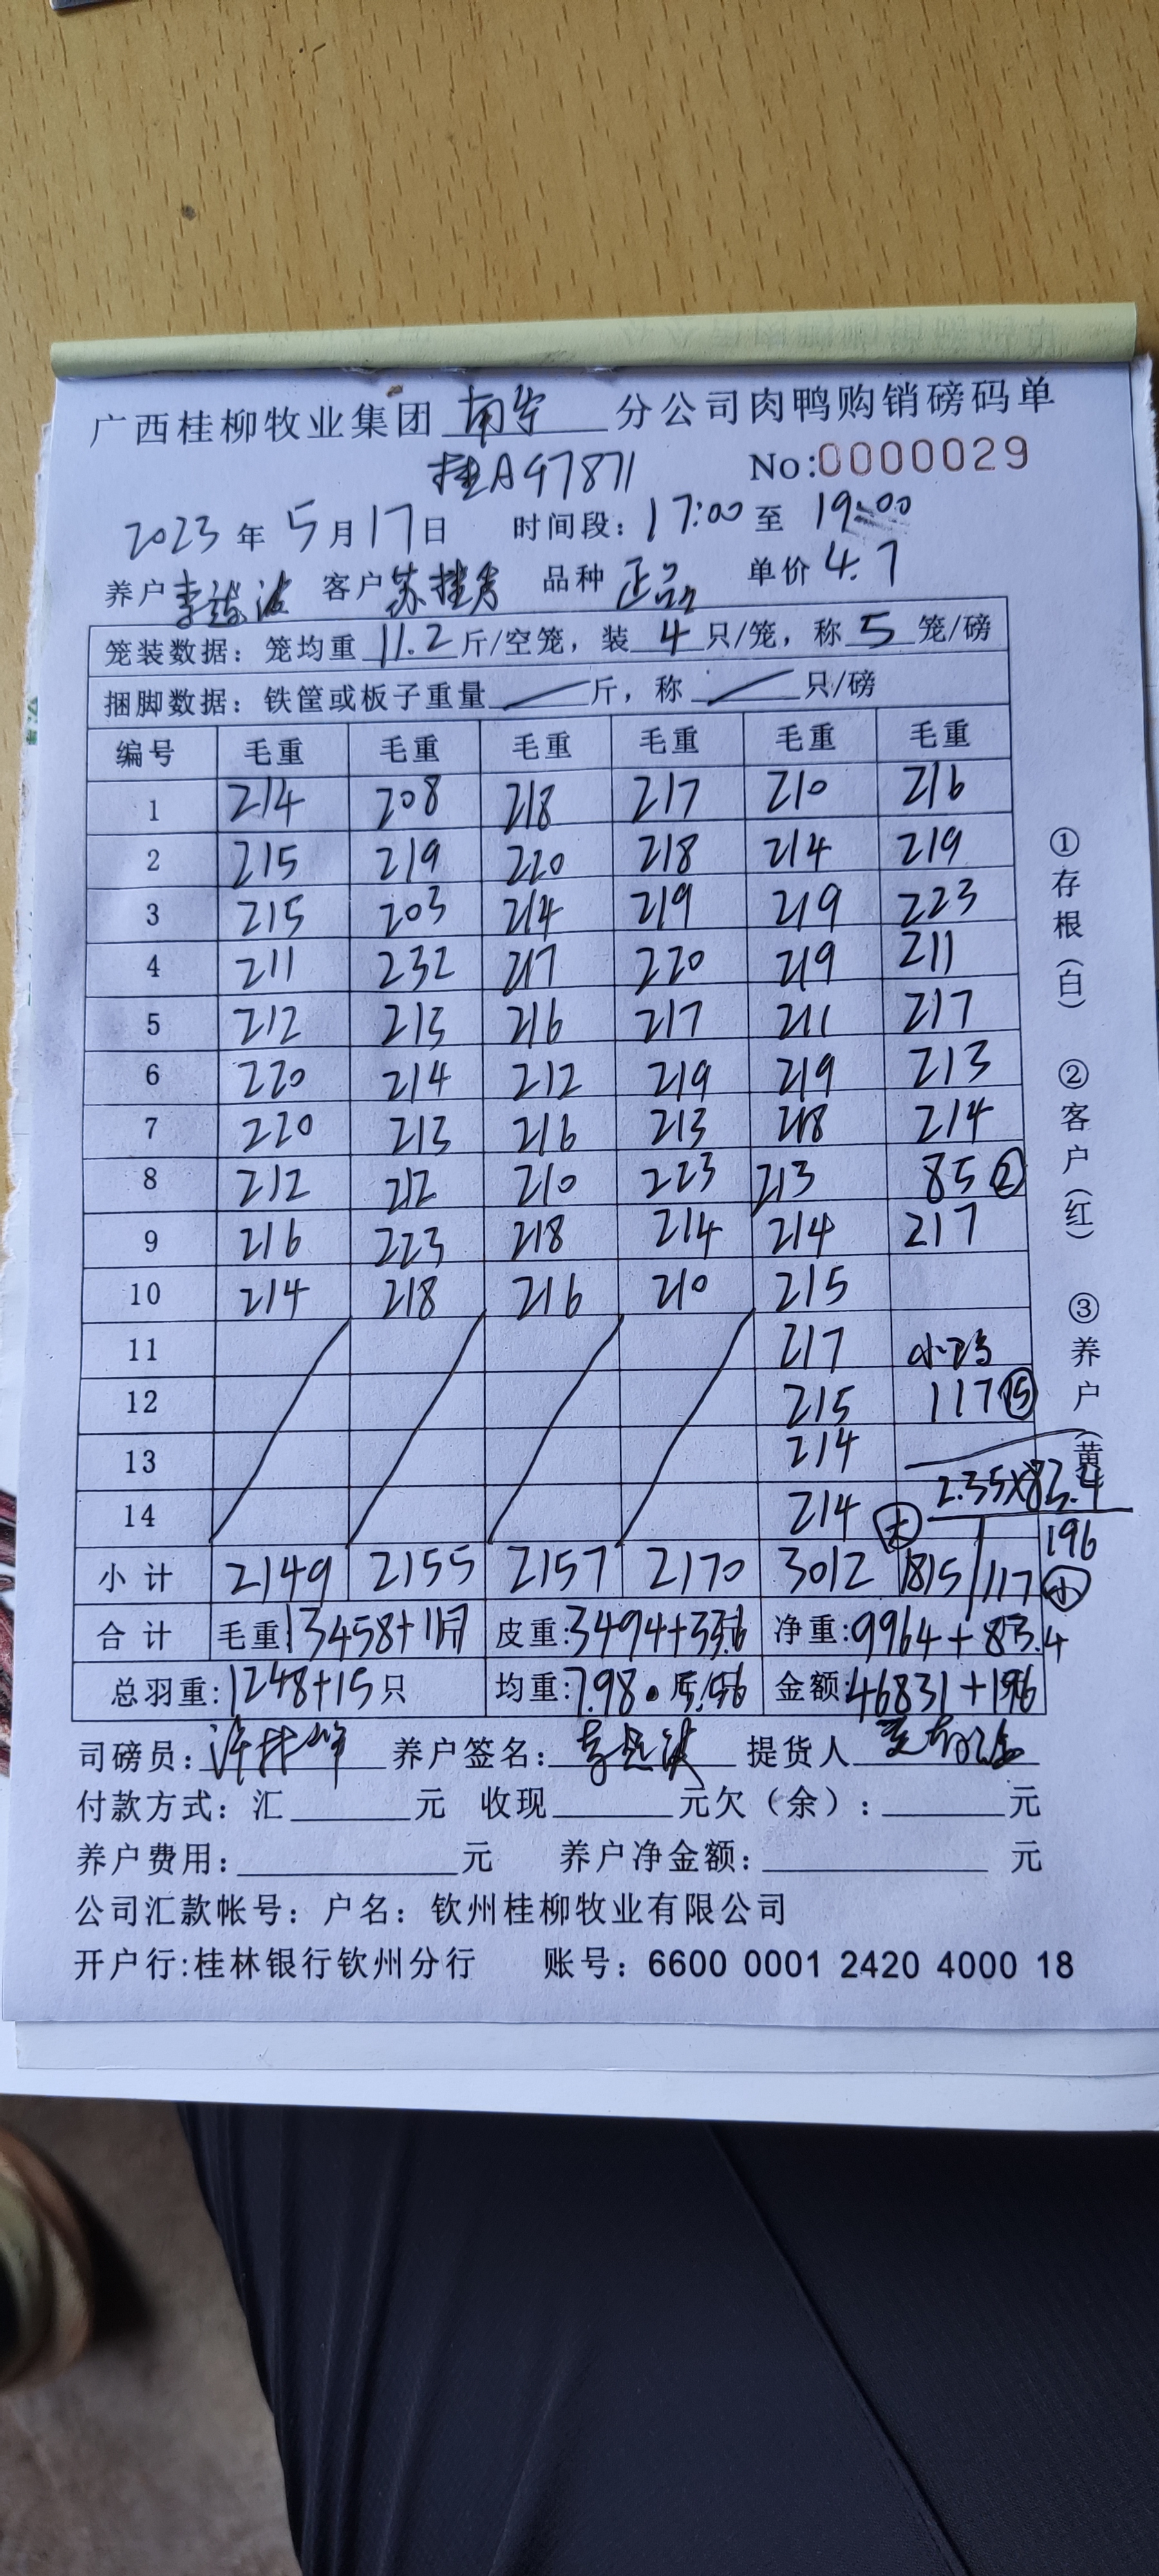 广西桂柳牧业集团 南宁 分公司肉鸭购销磅码单
桂A97871 No:0000029
2023年5月17日 时间段：17:00至19:00
养户 李 波 客户 苏桂秀 品种 正品 单价 4.7
笼装数据：笼均重 11.2 斤/空笼，装 4 只/笼，称 5 笼/磅
捆脚数据：铁筐或板子重量 斤，称 只/磅
编号 毛重 毛重 毛重 毛重 毛重 毛重
1 214 208 218 217 210 216
2 215 219 220 218 214 219
3 215 203 214 219 219 223
4 211 232 217 220 219 211
5 212 213 216 217 211 217
6 220 214 212 219 219 213
7 220 213 216 213 218 214
8 212 212 210 223 213 85 ②
9 216 223 218 214 214 217
10 214 218 216 210 215
11 217 小鸡
12 215 117 ⑮
13 214
14 214 2.35×83.4
196
小计 2149 2155 2157 2170 3012 大 1815/117 小
合计 毛重:13458+117 皮重:3494+33.6 净重:9964+83.4
总羽重:1248+15只 均重:7.98 斤/5.56 金额:46831+196
司磅员: 养户签名: 提货人
付款方式：汇 元 收现 元欠（余）: 元
养户费用: 元 养户净金额: 元
公司汇款帐号：户名：钦州桂柳牧业有限公司
开户行:桂林银行钦州分行 账号：6600 0001 2420 4000 18
①存根（白） ②客户（红） ③养户（黄